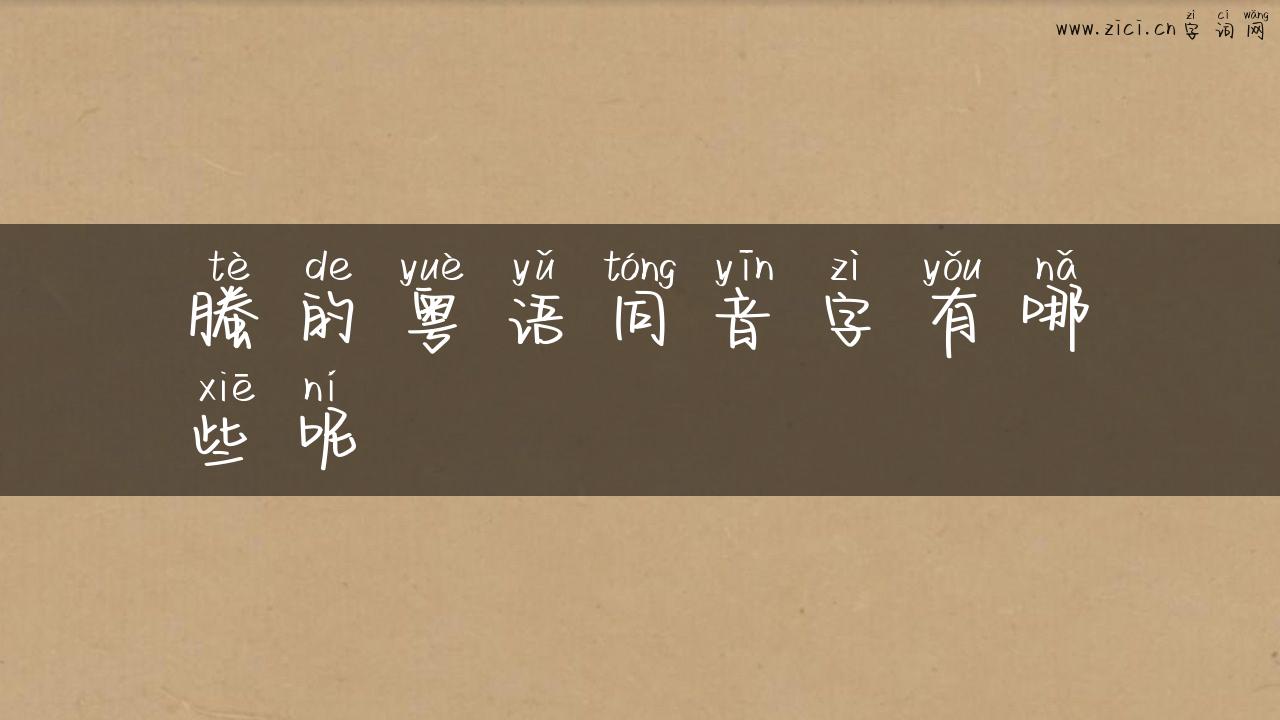 zì cí wǎng
www.zici.cn 字 词 网
tè de yuè yǔ tóng yīn zì yǒu nǎ
螣 的 粤 语 同 音 字 有 哪
xiē ní
些 呢